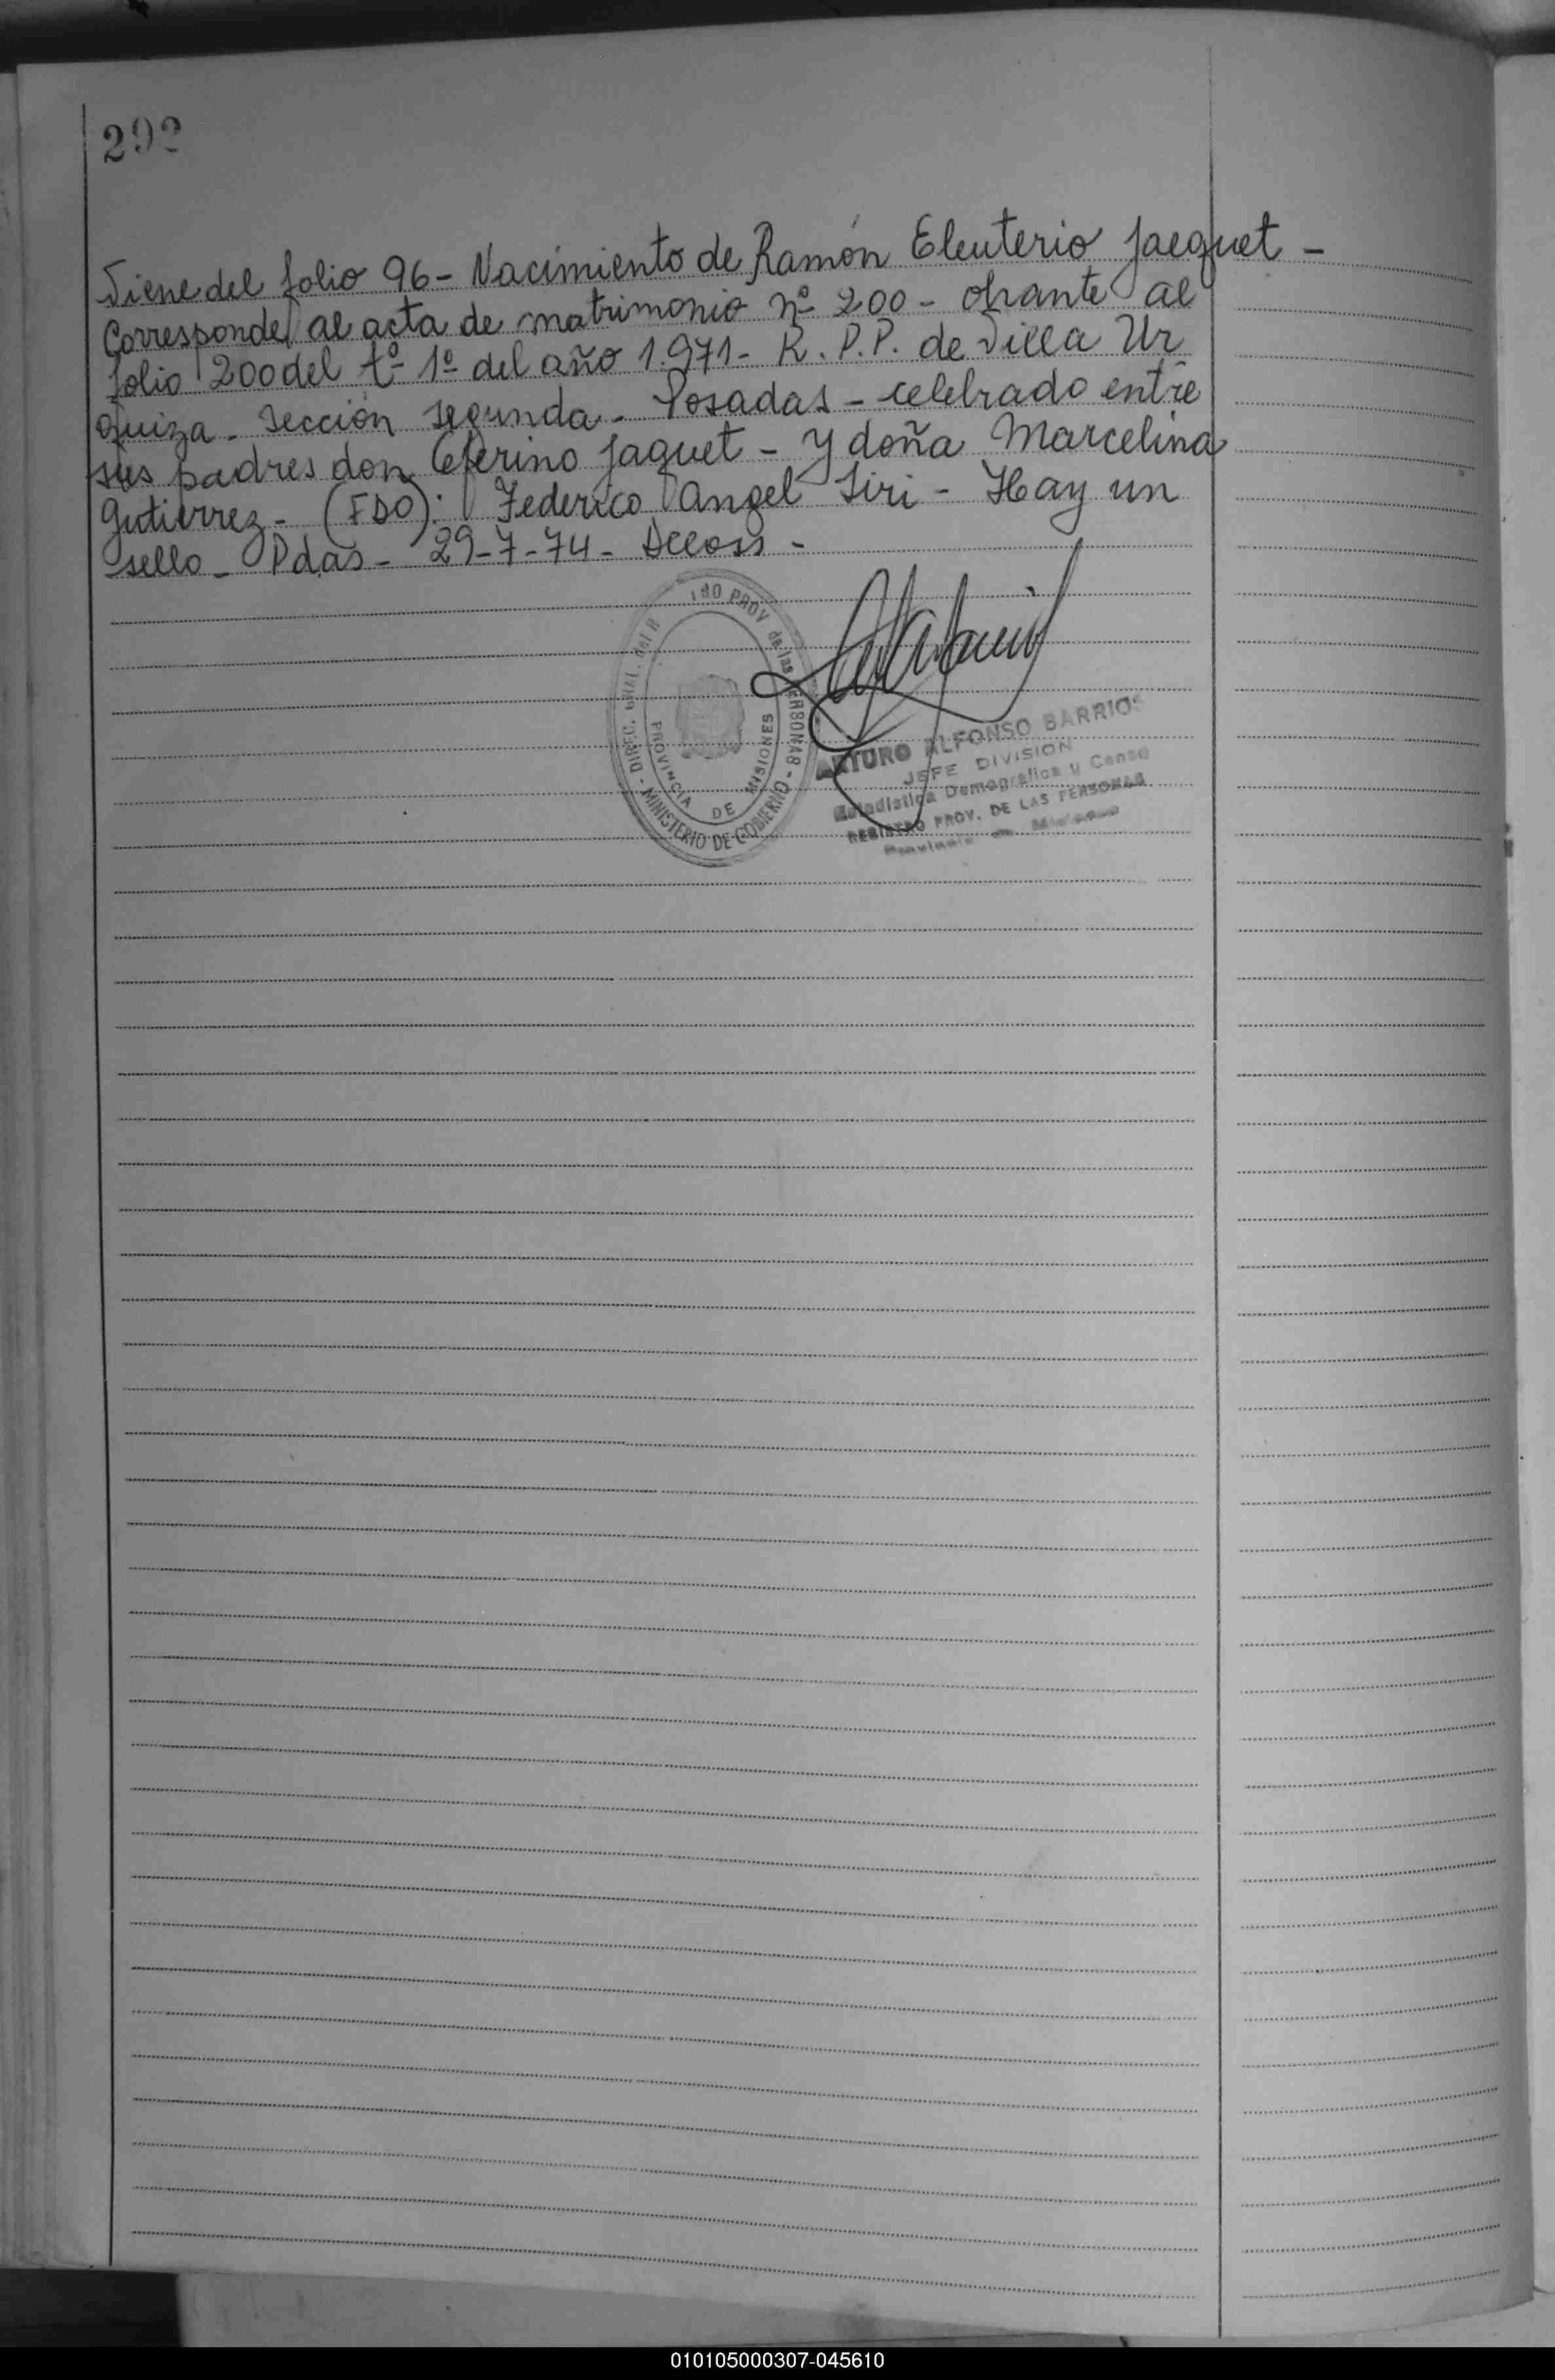 292
Viene del folio 96 - Nacimiento de Ramón Eleuterio Jacquet -
Corresponde al acta de matrimonio nº 200 - obrante al
folio 200 del tº 1º del año 1.971 - R.P.P. de Villa Ur
quiza - Sección segunda - Posadas - celebrado entre
sus padres don Ceferino Jaquet - y doña Marcelina
Gutierrez - (FDO): Federico Angel Siri - Hay un
sello - Pdas - 29-7-74 -
DIREC. GRAL. del R PROV de las PERSONAS - MINISTERIO DE GOBIERNO -
PROVINCIA DE MISIONES
ARTURO ALFONSO BARRIOS
JEFE DIVISION
Estadistica Demográfica y Censo
REGISTRO PROV. DE LAS PERSONAS
Provincia de Misiones
010105000307-045610